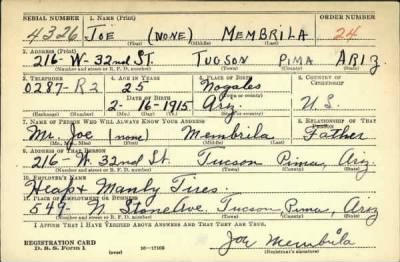 SERIAL NUMBER 1. NAME (Print) ORDER NUMBER
4326 JOE (NONE) MEMBRILA 24
(First) (Middle) (Last)
2. ADDRESS (Print)
216-W-32nd ST. TUCSON PIMA ARIZ
(Number and street or R. F. D. number) (Town) (County) (State)
3. TELEPHONE 4. AGE IN YEARS 5. PLACE OF BIRTH 6. COUNTRY OF CITIZENSHIP
0287-R2 25 Nogales
DATE OF BIRTH (Town or county)
2-16-1915 Ariz. U.S.
(Exchange) (Number) (Mo.) (Day) (Yr.) (State or country)
7. NAME OF PERSON WHO WILL ALWAYS KNOW YOUR ADDRESS 8. RELATIONSHIP OF THAT PERSON
Mr. Joe (none) Membrila Father
(First) (Middle) (Last)
9. ADDRESS OF THAT PERSON
216-W. 32nd St. Tucson Pima, Ariz.
(Number and street or R. F. D. number) (Town) (County) (State)
10. EMPLOYER'S NAME
Heap & Manby Tires
11. PLACE OF EMPLOYMENT OR BUSINESS
549- N. Stone Ave. Tucson Pima, Ariz
(Number and street or R. F. D. number) (Town) (County) (State)
I AFFIRM THAT I HAVE VERIFIED ABOVE ANSWERS AND THAT THEY ARE TRUE.
REGISTRATION CARD
D. S. S. Form 1 (over) 16-17105 Joe Membrila
(Registrant's signature)